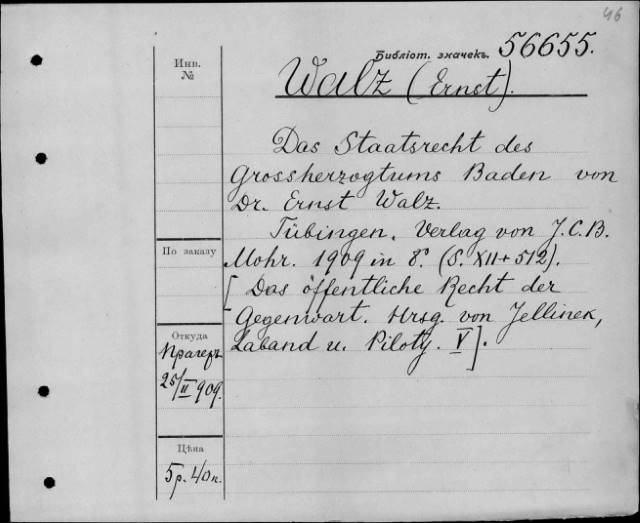 46
Библіот. значекъ. 56655.
Walz (Ernst).
Das Staatsrecht des
Grossherzogtums Baden von
Dr. Ernst Walz.
Tübingen. Verlag von J.C.B.
Mohr. 1909 in 8º (S. XII+512).
[Das öffentliche Recht der
Gegenwart. Hrsg. von Jellinek,
Laband u. Piloty. V].
Инв.
№
По заказу
Откуда
Прагеръ
25/II 909.
Цѣна
5р. 40к.